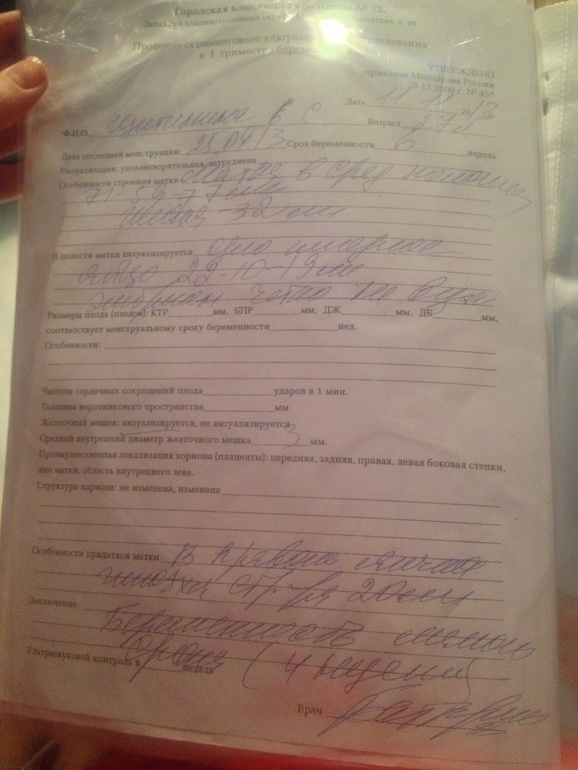 Городская клиническая больница № 72.
Протокол скринингового
в 1 триместре
УТВЕРЖДЕНО
приказом Минздрава России
№ 457
Дата 11. 13
Ф.И.О. Возраст 27
Дата последней менструации: 25.09.13 Срок беременности 6 недель
Визуализация: удовлетворительная, затруднена
Особенности строения матки матка в сред положении
71-59-77мм
шейка 32мм
В полости матки визуализируется одно плодное
яйцо 22-10-19мм
эмбрион четко не виден
Размеры плода (плодов): КТР мм, БПР мм, ДЖ мм, ДБ мм,
соответствует менструальному сроку беременности нед.
Особенности:
Частота сердечных сокращений плода ударов в 1 мин.
Толщина воротникового пространства мм.
Желточный мешок: визуализируется, не визуализируется
Средний внутренний диаметр желточного мешка 3 мм.
Преимущественная локализация хориона (плаценты): передняя, задняя, правая, левая боковая стенки,
дно матки, область внутреннего зева.
Структура хориона: не изменена, изменена
Особенности придатков матки В правом яичнике
20мм
Заключение: Беременность малого
срока (4 недели)
Ультразвуковой контроль в недель
Врач